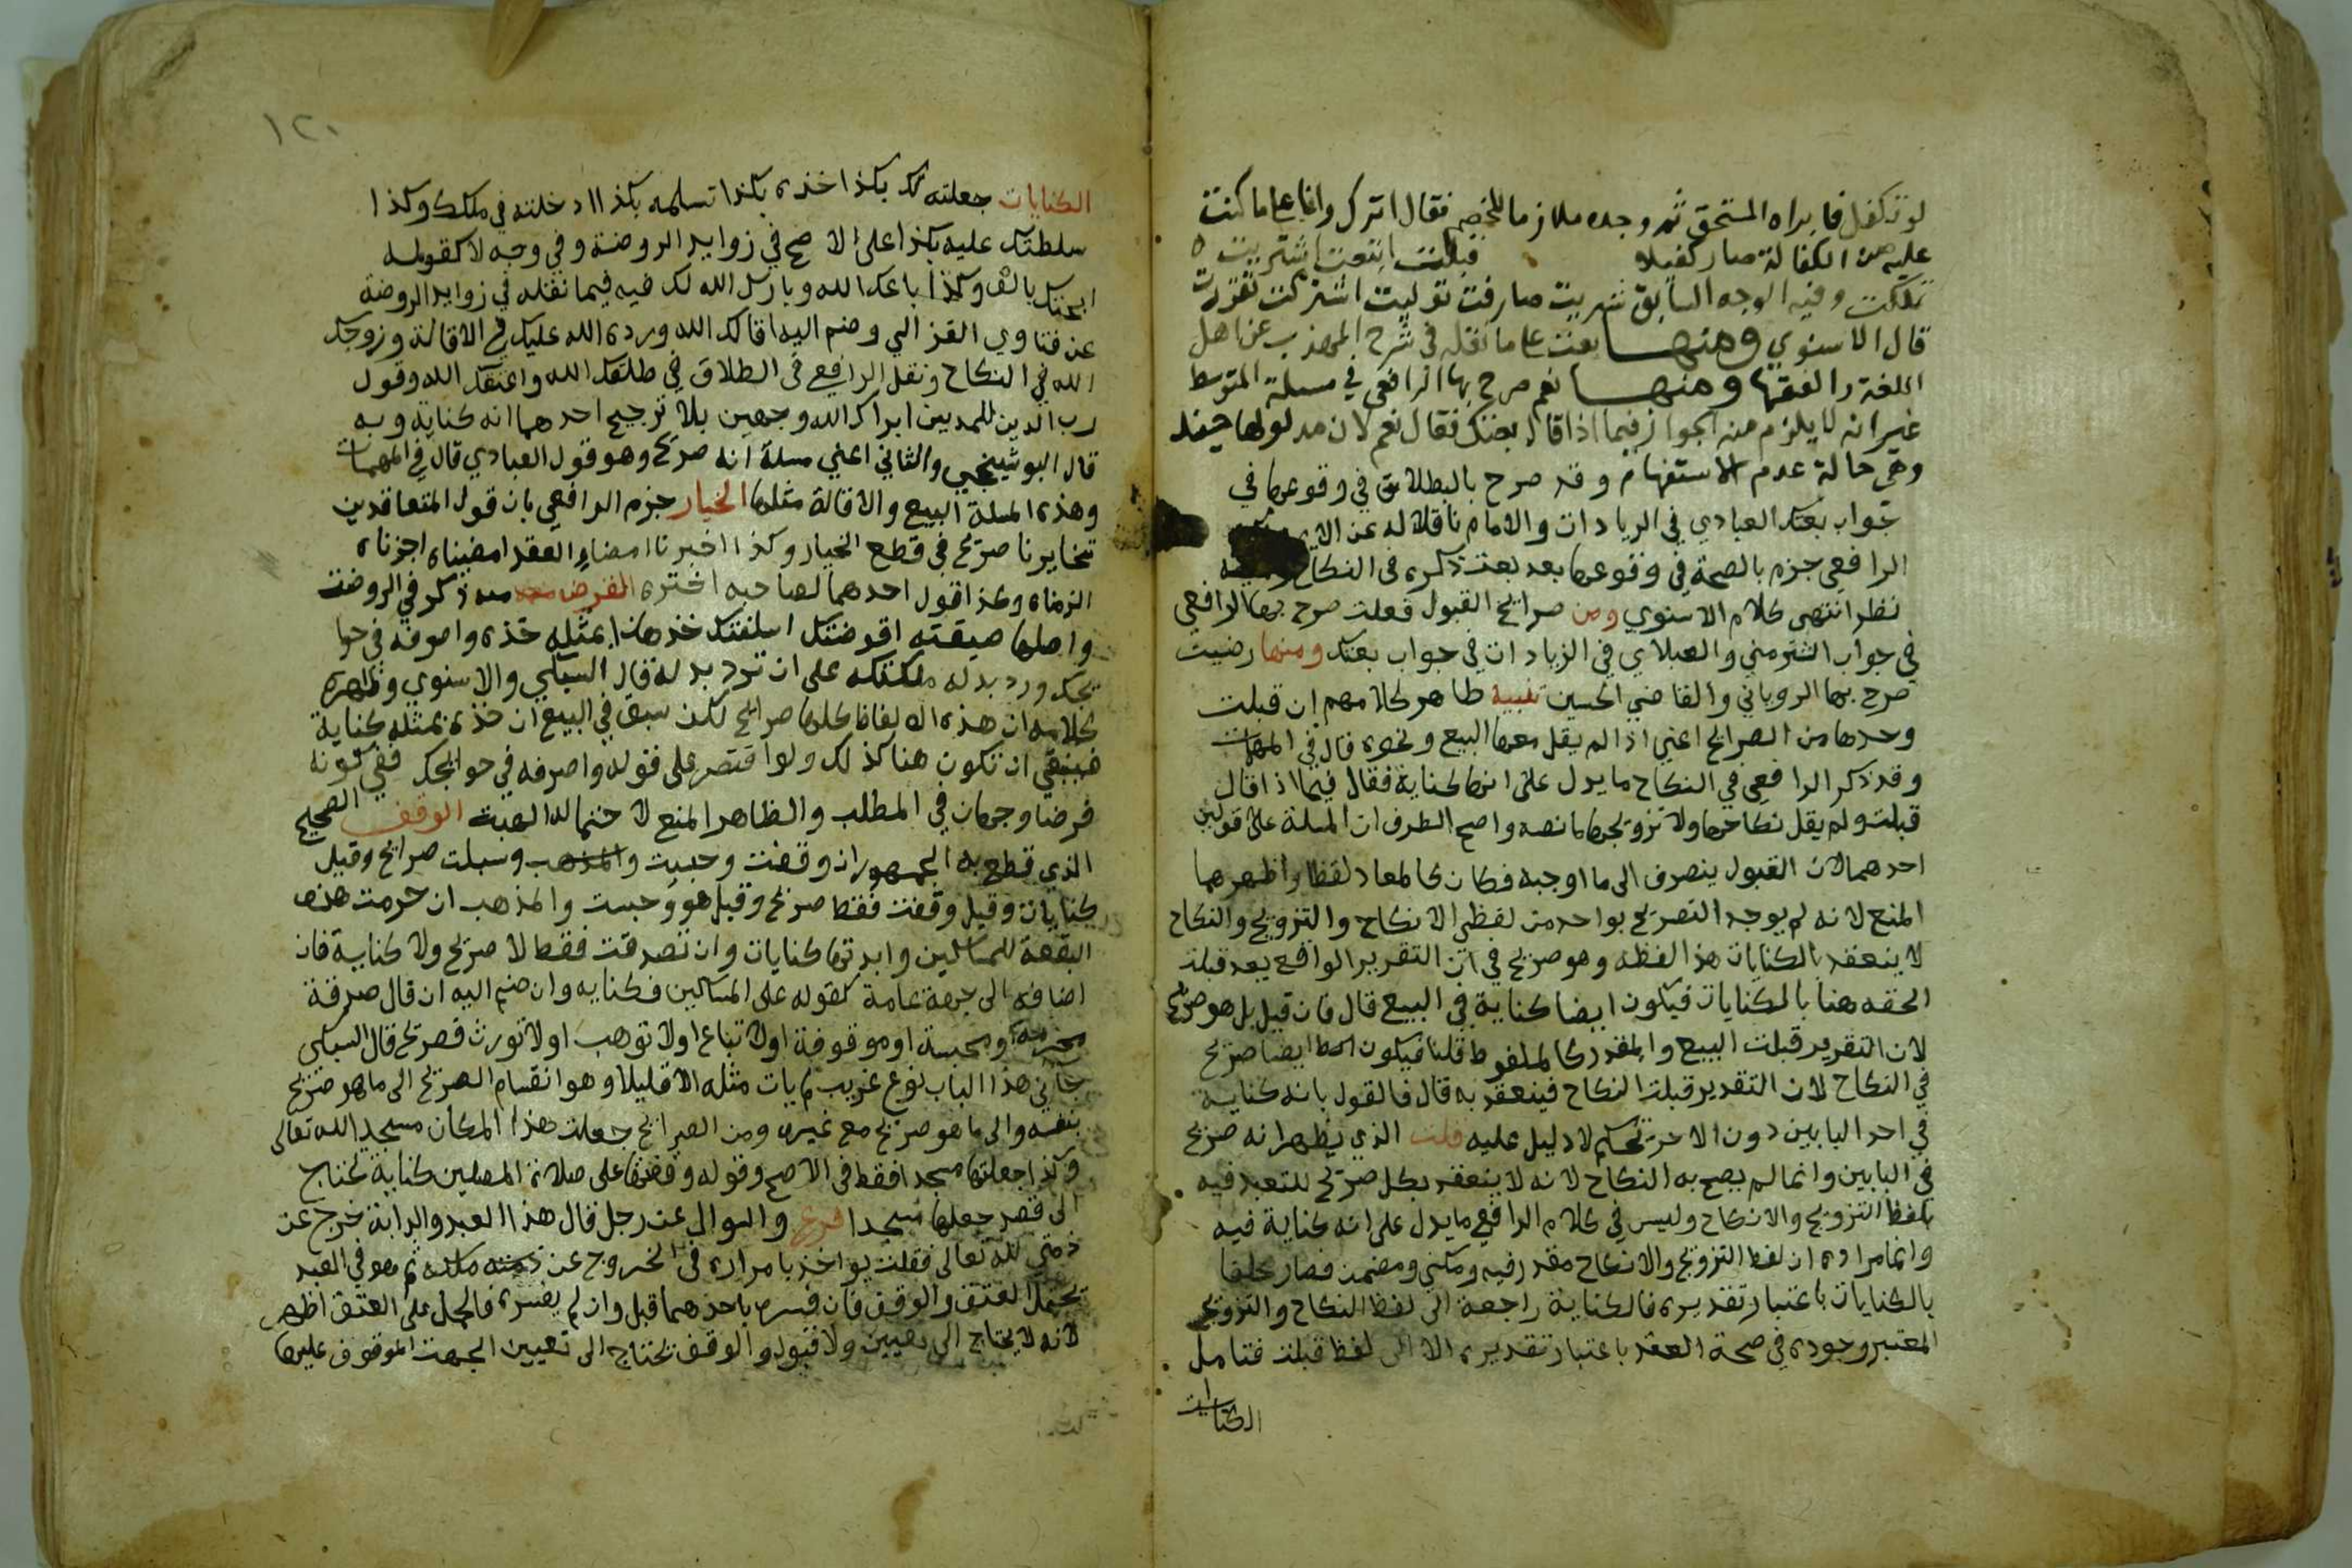 لو تكفل فابراه المستحق ثم وجده ملازما للخصم فقال اترك وانا على ما كنت
عليه من الكفالة صار كفيلا قبلت ابتعت اشتريت
تملكت وفيه الوجه السابق شريت صارفت توليت اشتركت تقررت
قال الاسنوي ومنها بعت على ما نقله في شرح المهذب عن اهل
اللغة والفقها ومنها نعم صرح بها الرافعي في مسلة المتوسط
غير انه لا يلزم منه الجواز فيما اذا قال بعتك فقال نعم لان مدلولها حينئذ
وهي حالة عدم الاستفهام وقد صرح بالبطلان في وقوعها في
جواب بعتك العبادي في الزيادات والامام ناقلا له عن
الرافعي جزم بالصحة في وقوعها بعد بعت ذكره في النكاح
نظر انتهى كلام الاسنوي ومن صرايح القبول فعلت صرح بها الرافعي
في جواب اشتر مني والعبادي في الزيادات في جواب بعتك ومنها رضيت
صرح بها الروياني والقاضي الحسين تنبيه ظاهر كلامهم ان قبلت
وحدها من الصرايح اعني اذا لم يقل معها البيع ونحوه قال في المهمات
وقد ذكر الرافعي في النكاح ما يدل على انها كناية فقال فيما اذا قال
قبلت ولم يقل نكاحها ولا تزويجها ما نصه واصح الطرق ان المسلة على قولين
احدهما لان القبول ينصرف الى ما اوجبه فكان كالمعاد لفظا واظهرهما
المنع لانه لم يوجد التصريح بواحد من لفظي الانكاح والتزويج والنكاح
لا ينعقد بالكنايات هذا لفظه وهو صريح في ان التقرير الواقع بعد قبلت
الحقه هنا بالكنايات فيكون ايضا كناية في البيع قال فان قيل بل هو صريح
لان التقرير قبلت البيع والمقدر كالملفوظ قلنا فيكون ايضا صريح
في النكاح لان التقدير قبلت النكاح فينعقد به قال فالقول بانه كناية
في احد البابين دون الاخر تحكم لا دليل عليه قلت الذي يظهر انه صريح
في البابين وانما لم يصح به النكاح لانه لا ينعقد بكل صريح للتعبد فيه
بلفظ التزويج والانكاح وليس في كلام الرافعي ما يدل على انه كناية فيه
وانما مراده ان لفظ التزويج والانكاح مقدر فيه ومكني ومضمن فصار ملحقا
بالكنايات باعتبار تقديره فالكناية راجعة الى لفظ النكاح والتزويج
المعتبر وجوده في صحة العقد باعتبار تقديره لا الى لفظ قبلت فتامل
الكنايات
١٢٠
الكنايات جعلته لك بكذا خذه بكذا تسلمه بكذا ادخلته في ملكك وكذا
سلطتك عليه بكذا على الاصح في زوايد الروضة وفي وجه لا كقوله
ابحتك بالف وكذا باعك الله وبارك الله لك فيه فيما نقله في زوايد الروضة
عن فتاوي الغزالي وضم اليه اقالك الله ورده الله عليك في الاقالة وزوجك
الله في النكاح ونقل الرافعي في الطلاق في طلقك الله واعتقك الله وقول
رب الدين للمدين ابراك الله وجهين بلا ترجيح احدهما انه كناية وبه
قال البوشنجي والثاني اعني مسلة انه صريح وهو قول العبادي قال في المهمات
وهذه المسلة البيع والاقالة مثلها الخيار جزم الرافعي بان قول المتعاقدين
تخايرنا صريح في قطع الخيار وكذا اخترنا امضاء العقد امضيناه اجزناه
الزمناه وكذا قول احدهما لصاحبه اخترت القرض ذكر في الروضة
واصلها صيغته اقرضتك اسلفتك خذ هذا بمثله خذه واصرفه في حوا
يجك ورد بدله ملكتكه على ان ترد بدله قال السبكي والاسنوي وظاهر
كلامه ان هذه الالفاظ كلها صرايح لكن سبق في البيع ان خذه بمثله كناية
فينبغي ان تكون هنا كذلك ولو اقتصر على قوله واصرفه في حوائجك ففي كونه
قرضا وجهان في المطلب والظاهر المنع لاحتماله الهبة الوقف الصحيح
الذي قطع به الجمهور ان وقفت وحبست وسبلت صرايح وقيل
كنايات وقيل وقفت فقط صريح وقيل هو وحبست والمذهب ان حرمت هذه
البقعة للمساكين وابدتها كنايات وان تصدقت فقط لا صريح ولا كناية فان
اضافه الى جهة عامة كقوله على المساكين فكناية وان ضم اليه ان قال صدقة
محرمة او محبسة او موقوفة او لا تباع او لا توهب او لا تورث فصريح قال السبكي
هذا الباب نوع غريب لم يات مثله الا قليلا وهو انقسام الصريح الى ما هو صريح
بنفسه والى ما هو صريح مع غيره ومن الصرايح جعلت هذا المكان مسجد الله تعالى
وكذا جعلتها مسجدا فقط في الاصح وقوله وقفتها على صلاة المصلين كناية تحتاج
الى قصد جعلها مسجدا فرع والسوال عن رجل قال هذا العبد والدابة خرج عن
ذمتي لله تعالى فقلت يواخذ باقراره في الخروج عن ذمته ملكه ثم هو في العبد
يحتمل العتق والوقف فان فسره باحدهما قبل وان لم يفسره فالحمل على العتق اظهر
لانه لا يحتاج الى تعيين ولا قبول والوقف يحتاج الى تعيين الجهة الموقوف عليها